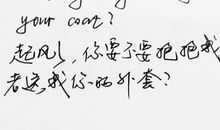 your coat?
起风了，你要不要抱抱我
者这我你的外套？